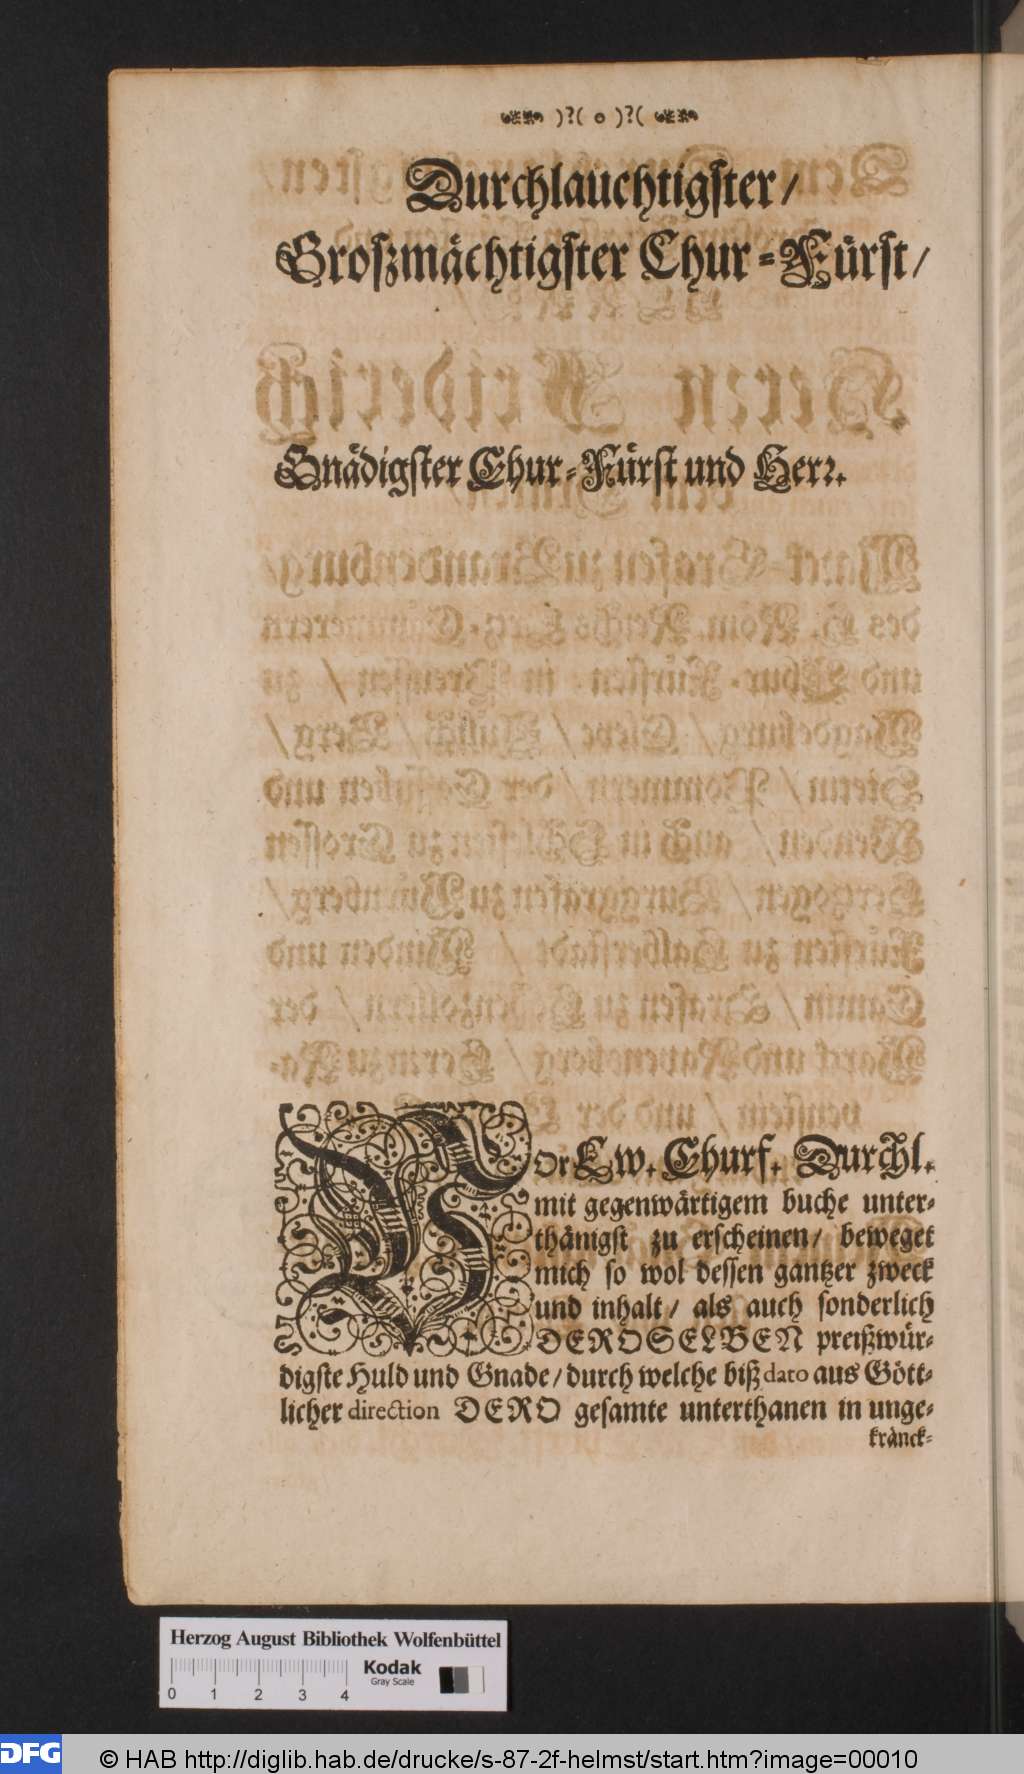 )?( o )?(
Durchlauchtigster/
Großmächtigster Chur-Fürst/
Gnädigster Chur-Fürst und Herr.
Vor Ew. Churf. Durchl.
mit gegenwärtigem buche unter-
thänigst zu erscheinen/ beweget
mich so wol dessen gantzer zweck
und inhalt/ als auch sonderlich
DEROSELBEN preißwür-
digste Huld und Gnade/ durch welche biß dato aus Gött-
licher direction DERO gesamte unterthanen in unge-
kränck-
Herzog August Bibliothek Wolfenbüttel
Kodak
Gray Scale
0 1 2 3 4
DFG © HAB http://diglib.hab.de/drucke/s-87-2f-helmst/start.htm?image=00010